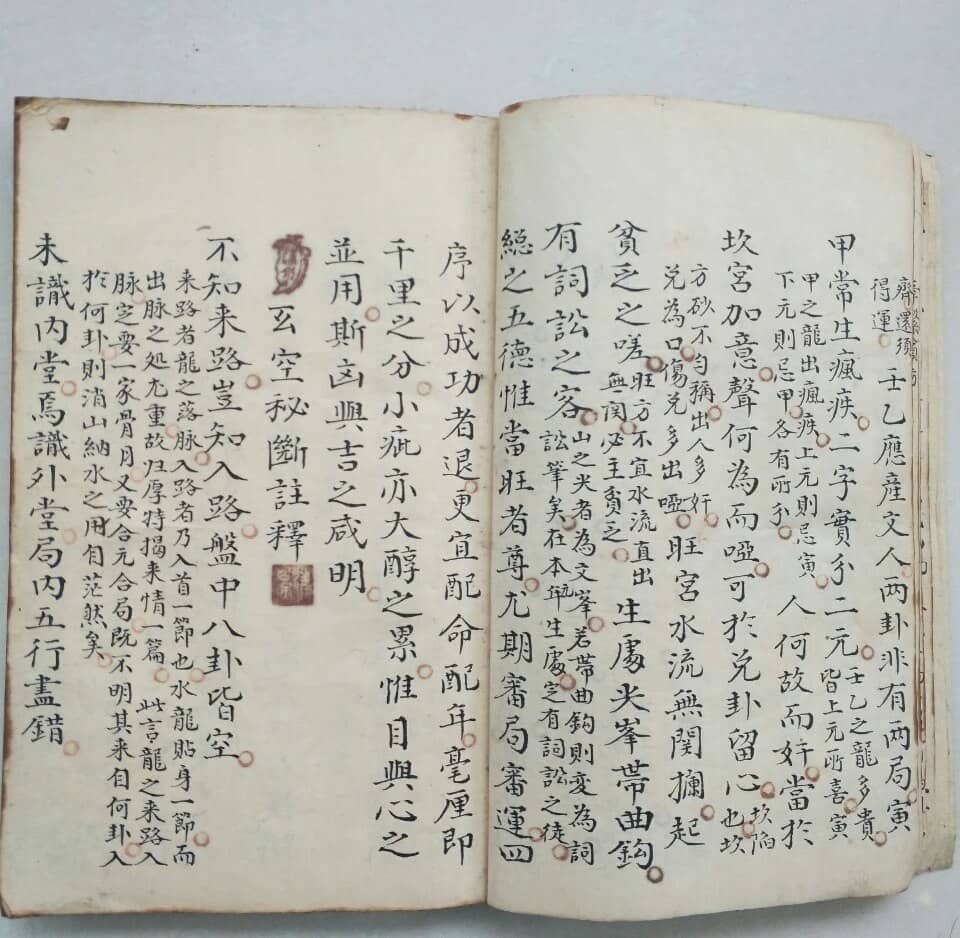 齊還須
得運
壬乙應産文人两卦非有两局寅
甲常生瘋疾二字實分二元
壬乙之龍多貴
皆上元所喜寅
甲之龍出瘋疾上元則忌寅
下元則忌甲各有所分
人何故而奸當於
坎宮加意聲何為而啞可於兑卦留心
坎陷
也坎
方砂不勻稱出人多奸
兑為口傷兑多出啞
旺宮水流無関攔起
貧乏之嗟
旺方不宜水流直出
無関必主貧乏
生處尖峯帶曲鈎
有詞訟之客
山之尖者為文峯若帶曲鈎則变為詞
訟筆矣在本卦生處定有詞訟之徒
縂之五德惟當旺者尊尤期審局審運四
序以成功者退更宜配命配年毫厘即
千里之分小疵亦大醇之累惟目與心之
並用斯凶與吉之咸明
玄空秘斷註釋
不知来路豈知入路盤中八卦皆空
来路者龍之落脉入路者乃入首一節也水龍貼身一節而
出脉之処尤重故归厚特揭来情一篇 此言龍之来路入
脉定要一家骨月又要合元合局既不明其来自何卦入
於何卦則消山納水之用自茫然矣
未識内堂焉識外堂局内五行盡錯